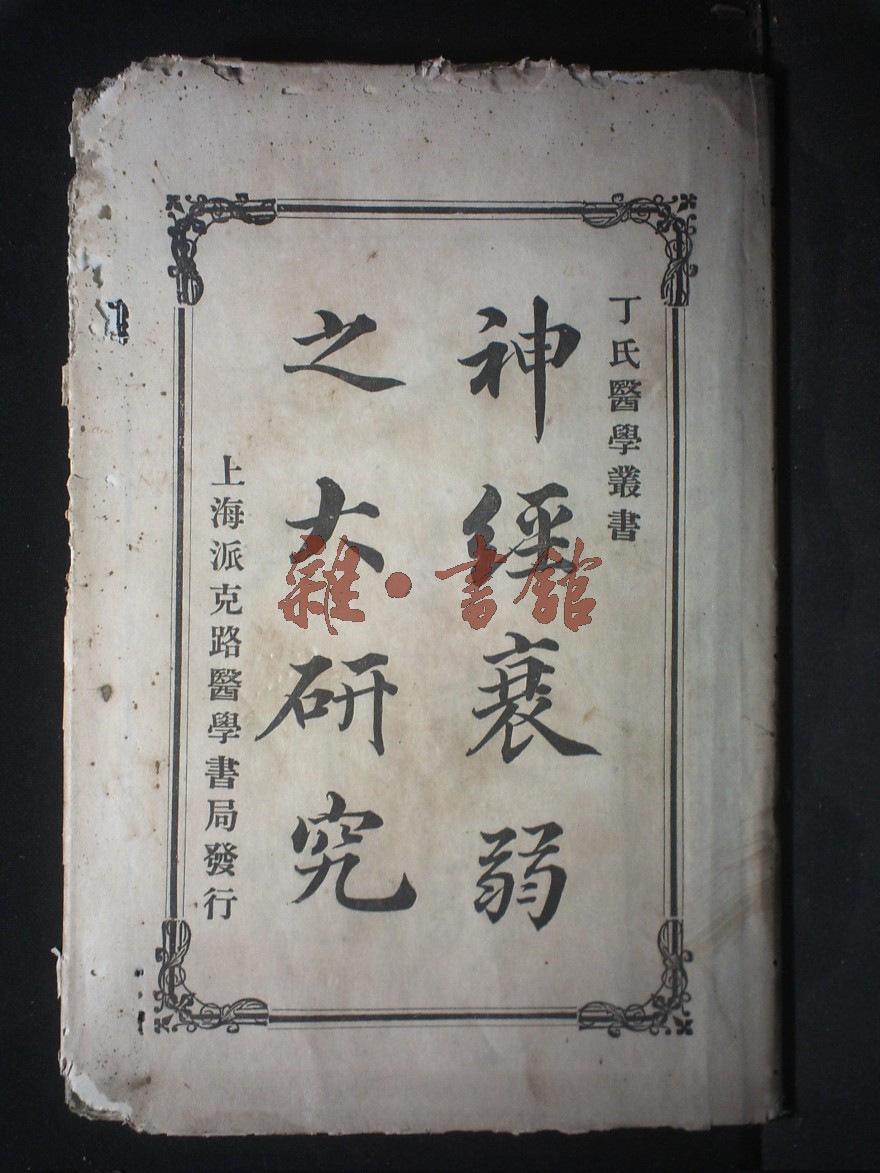 丁氏醫學叢書
神經衰弱
之大研究
上海派克路醫學書局發行
雜·書館